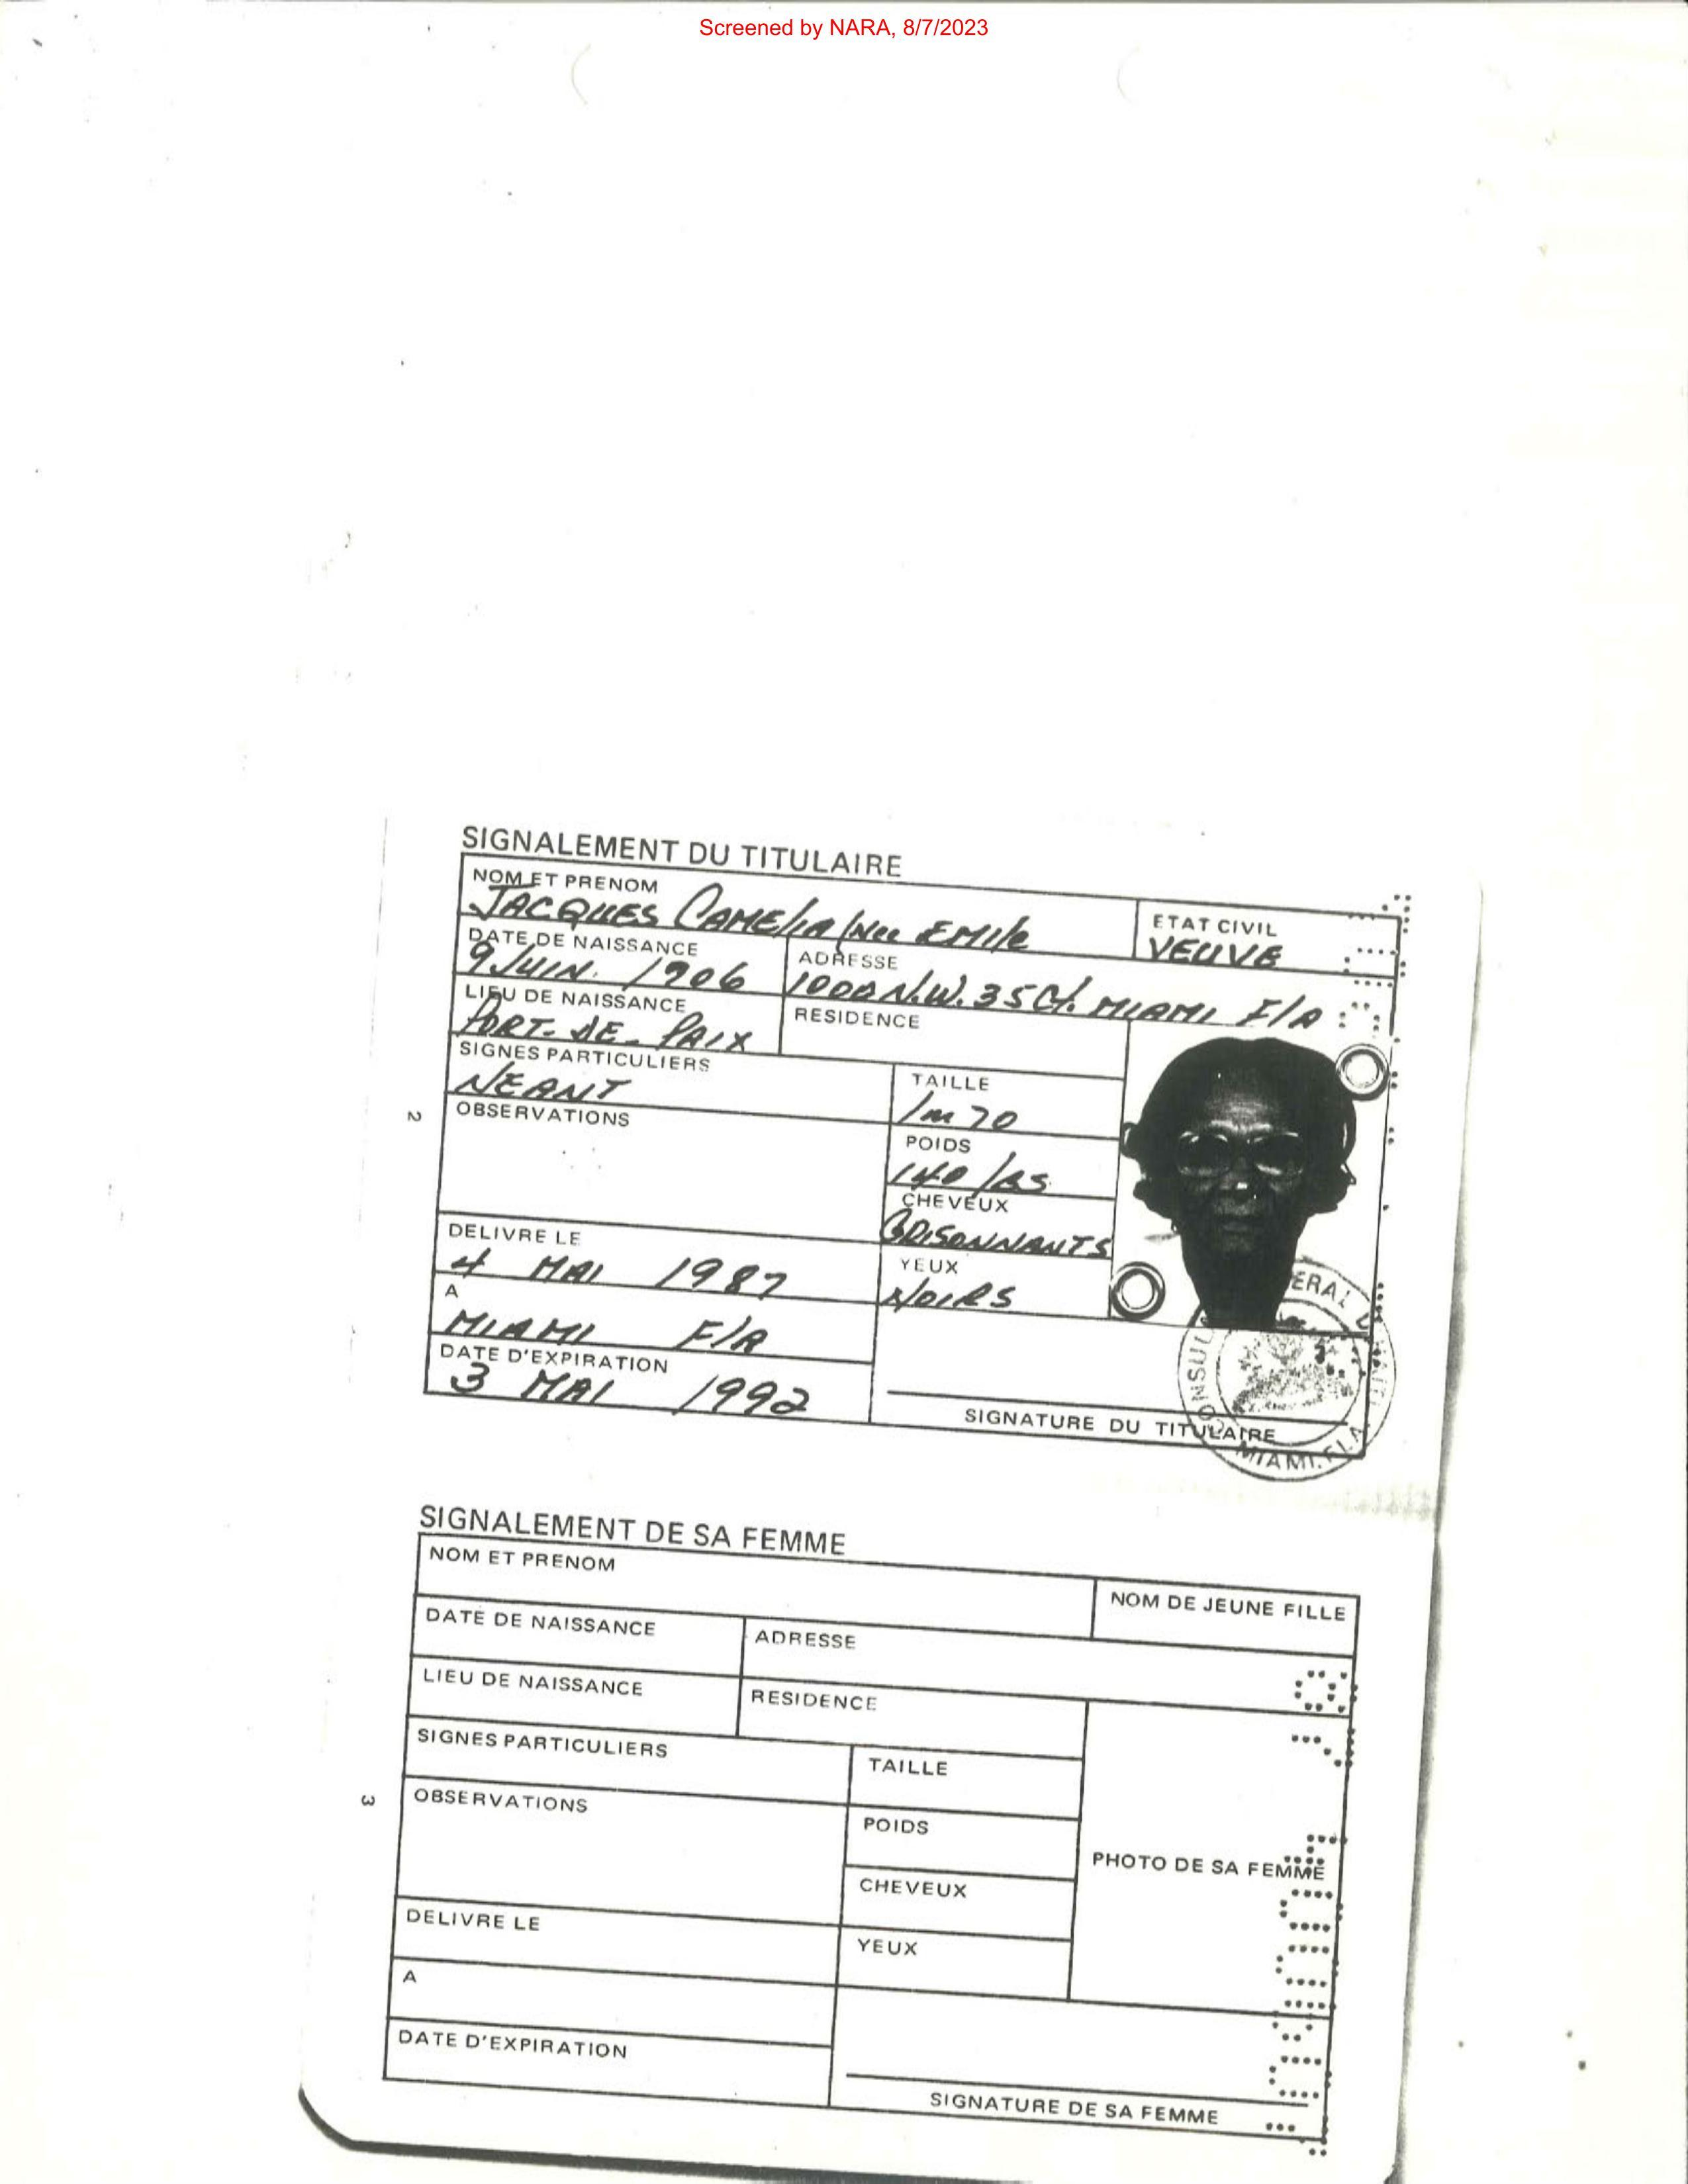 Screened by NARA, 8/7/2023
SIGNALEMENT DU TITULAIRE
NOM ET PRENOM
JACQUES CAMElia (Nee EMIle
ETAT CIVIL
VEUVE
DATE DE NAISSANCE
9 JUIN. 1906
ADRESSE
1000 N.W. 35 Ct. MIAMI FlA
LIEU DE NAISSANCE
PORT-DE-PAIX
RESIDENCE
SIGNES PARTICULIERS
NEANT
TAILLE
1m 70
OBSERVATIONS
POIDS
140 lbs
CHEVEUX
GRISONNANTS
DELIVRE LE
4 MAI 1987
YEUX
NOIRS
A
MIAMI FlA
DATE D'EXPIRATION
3 MAI 1992
SIGNATURE DU TITULAIRE
CONSULAT GENERAL D'HAITI
MIAMI. FLA
2
SIGNALEMENT DE SA FEMME
NOM ET PRENOM
NOM DE JEUNE FILLE
DATE DE NAISSANCE
ADRESSE
LIEU DE NAISSANCE
RESIDENCE
SIGNES PARTICULIERS
TAILLE
OBSERVATIONS
POIDS
PHOTO DE SA FEMME
CHEVEUX
DELIVRE LE
YEUX
A
DATE D'EXPIRATION
SIGNATURE DE SA FEMME
3